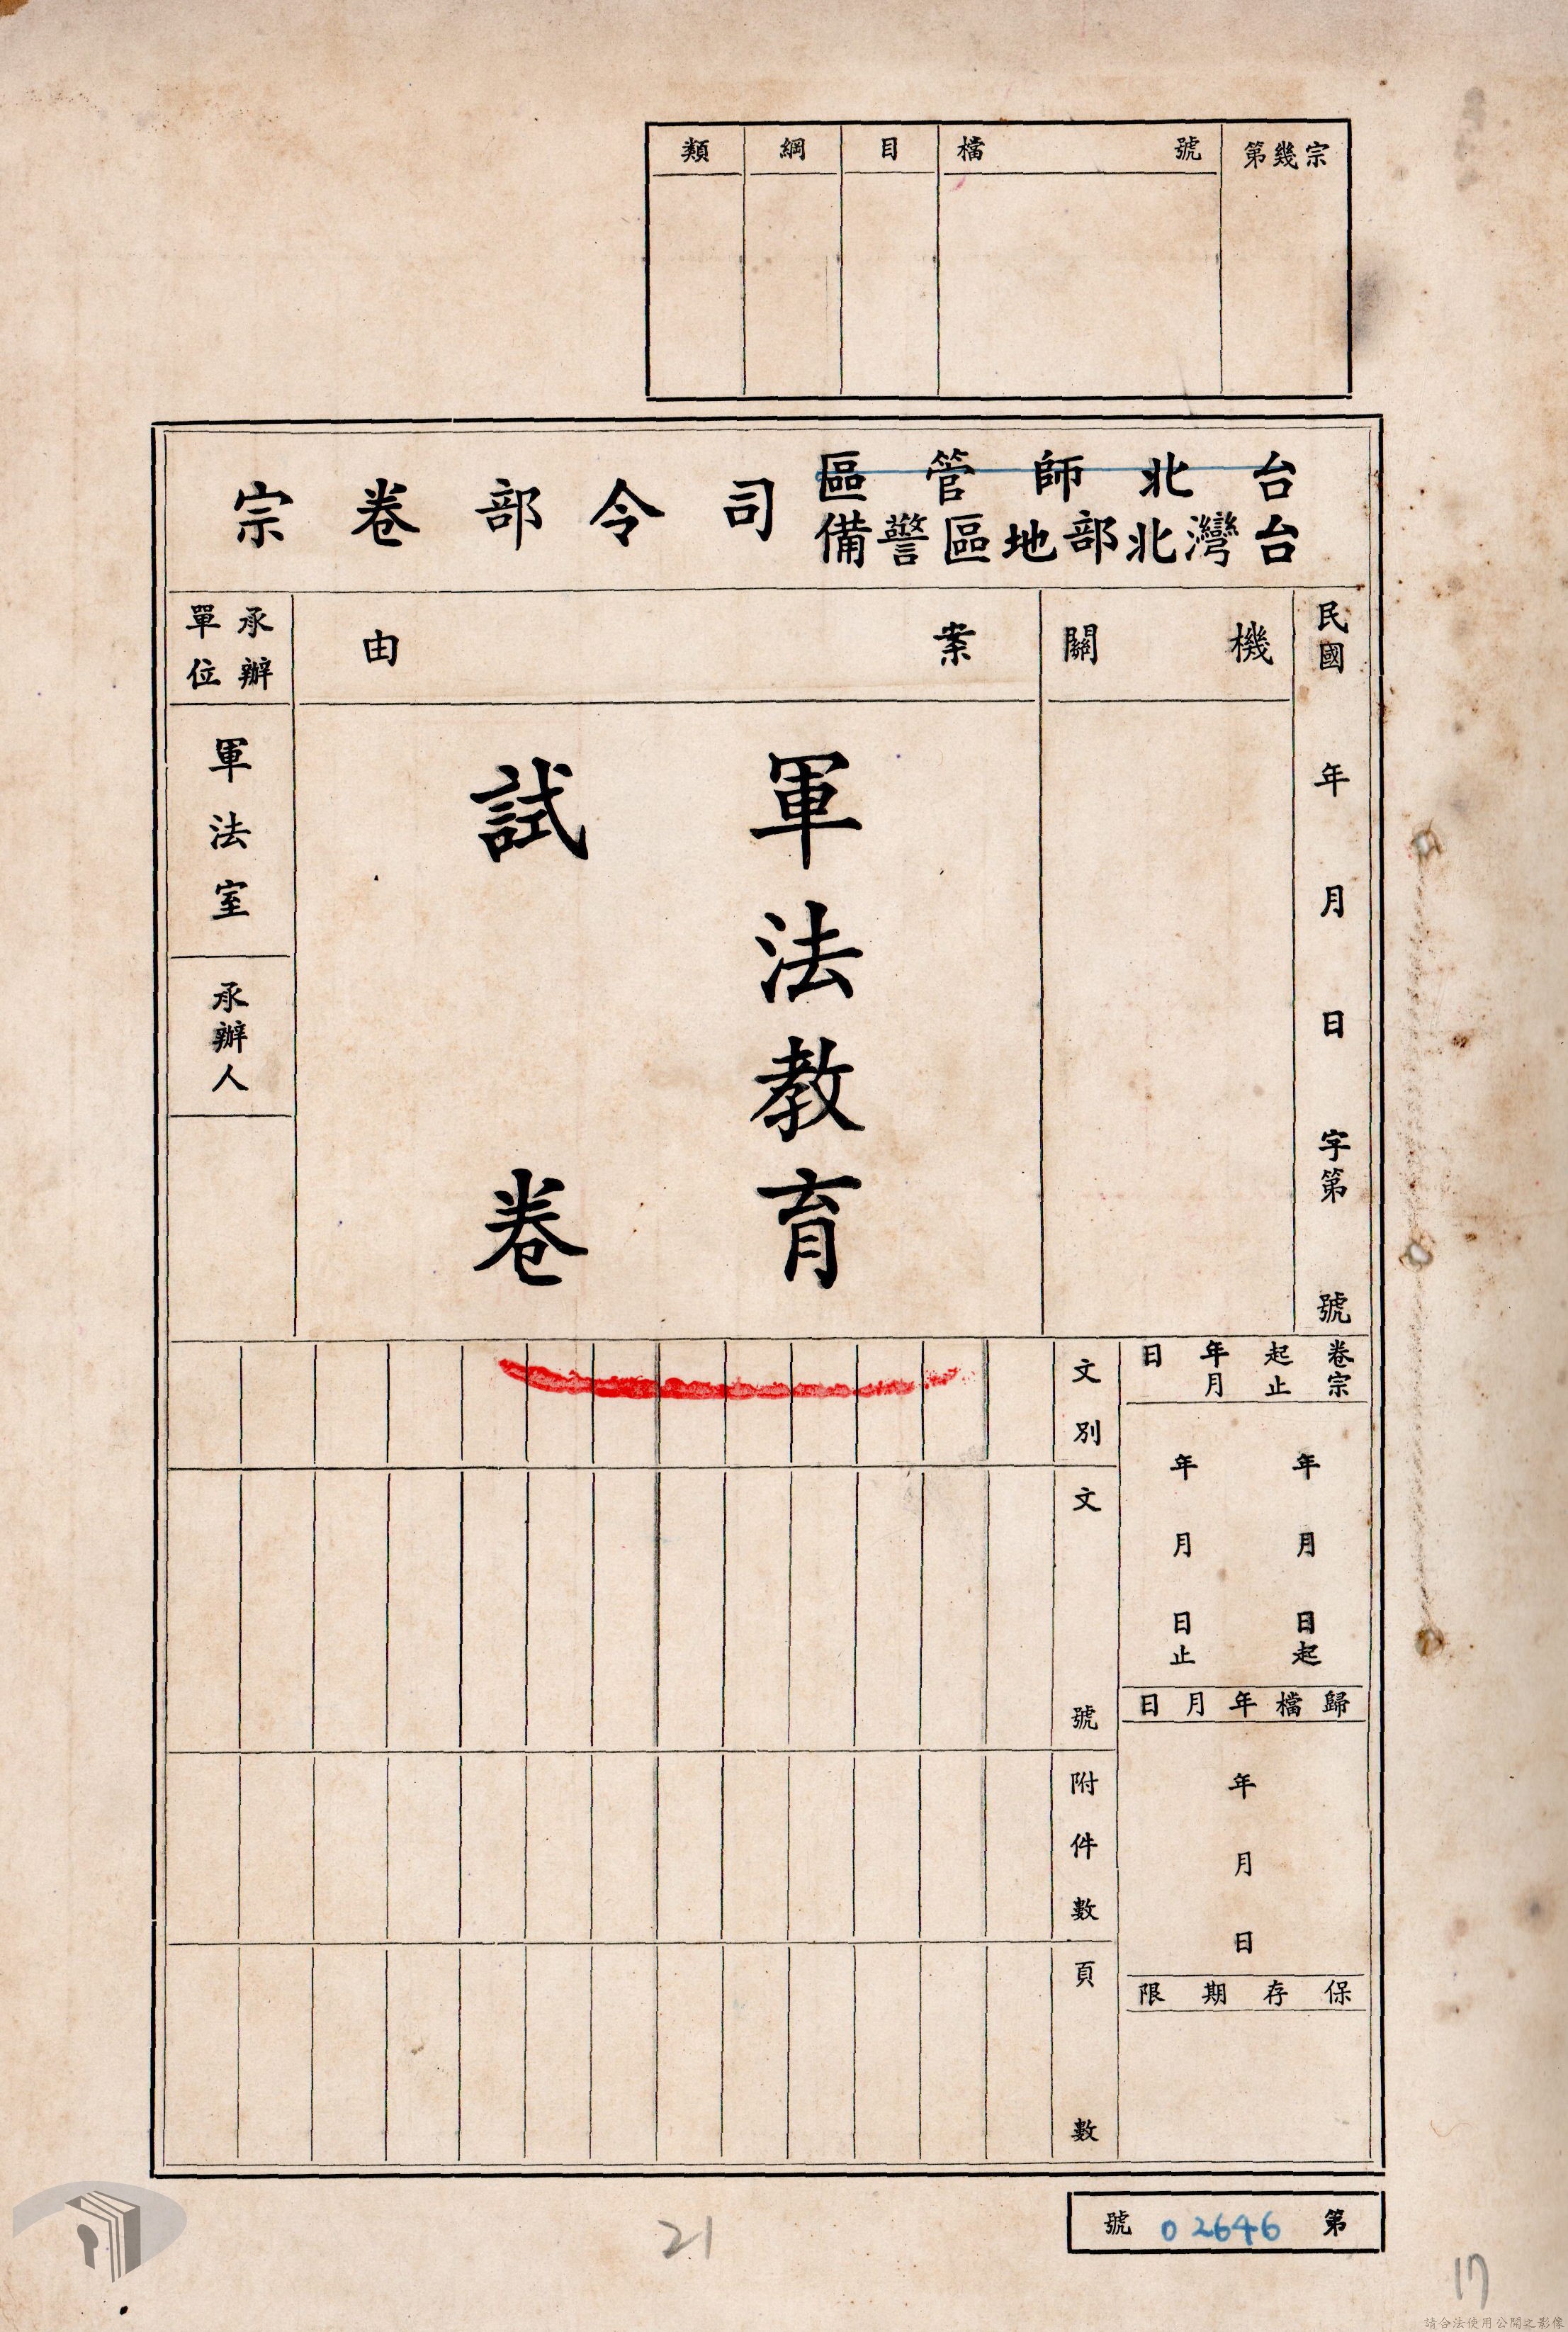 第幾宗
檔號
目
綱
類
台北師管區
台灣北部地區警備
司令部卷宗
民國 年 月 日 字第 號
機關
案由
軍法教育
試卷
承辦單位
軍法室
承辦人
卷宗起止年月日
年 月 日起
年 月 日止
歸檔年月日
年 月 日
保存期限
文別
文號
附件數
頁數
第 02646 號
21
17
請合法使用公開之影像